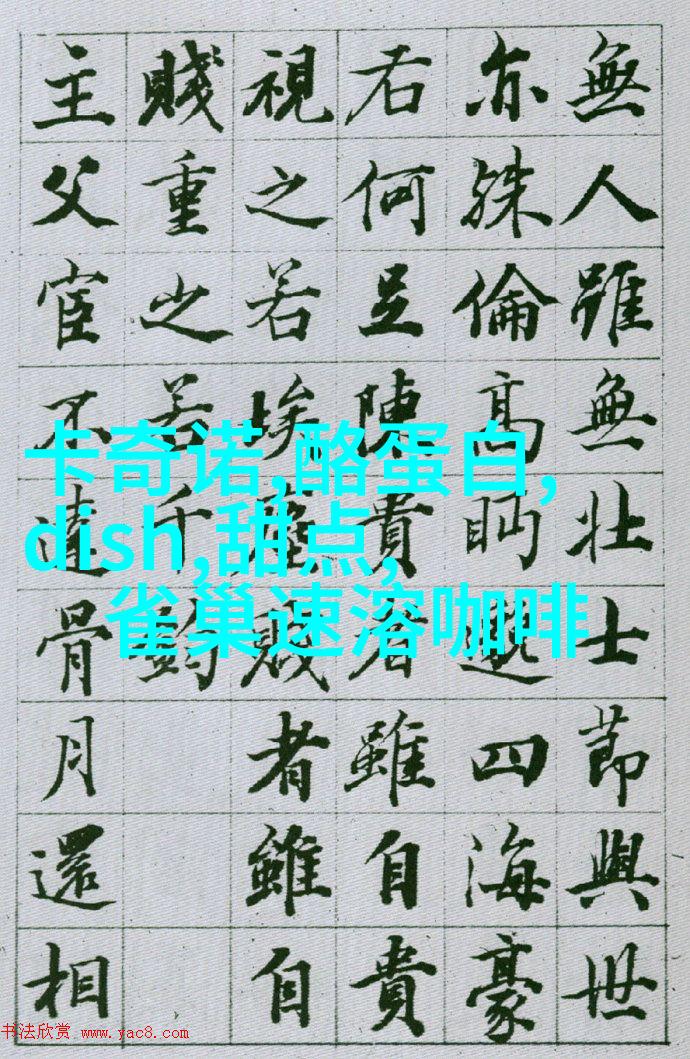 無人雖無壯士節與世
亦殊倫高眄邈四海豪
右何足陳貴者雖自貴
視之若埃塵賤者雖自
賤重之若千鈞
主父宦不達骨月還相
卡奇诺,酪蛋白,
dish,甜点,
雀巢速溶咖啡
书法欣赏 www.yac8.com